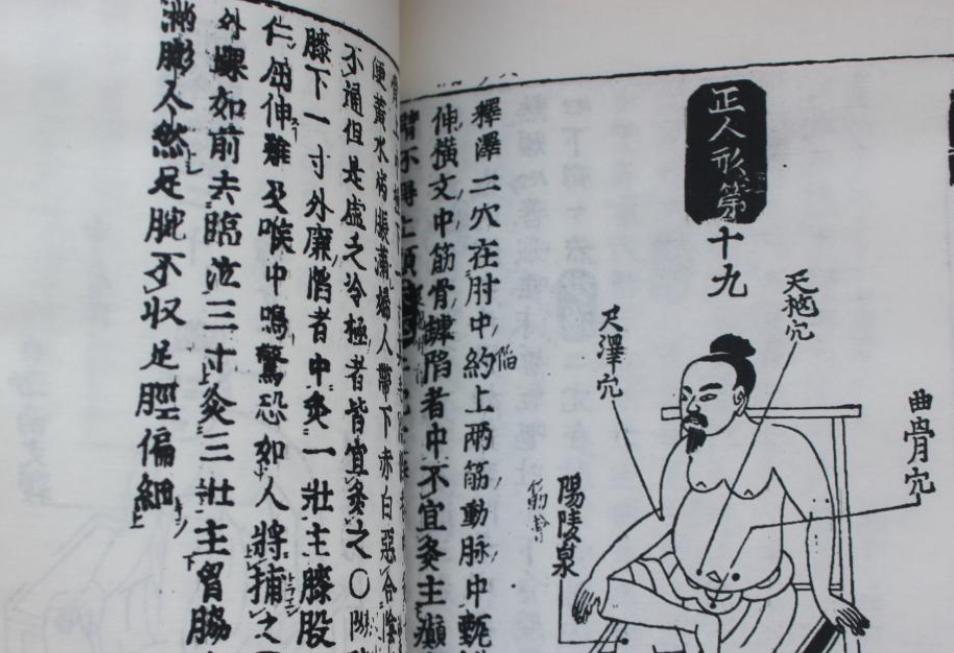 正人形第十九
天枢穴
尺澤穴
曲骨穴
陽陵泉
釋澤二穴在肘中約上兩筋動脉中甄
陷
伸横文中筋骨罅陷者中不宜灸主癲
臂不得上頭
便黄水病脹滿婦人帶下赤白惡合陰
不通但是虚之冷極者皆宜灸之〇陽
膝下一寸外廉陷者中灸一壯主膝股
仁屈伸難及喉中鳴驚恐如人將捕之
外踝如前去臨泣三寸灸三壯主胃脇
滿膨人然足脘不収足脛偏細